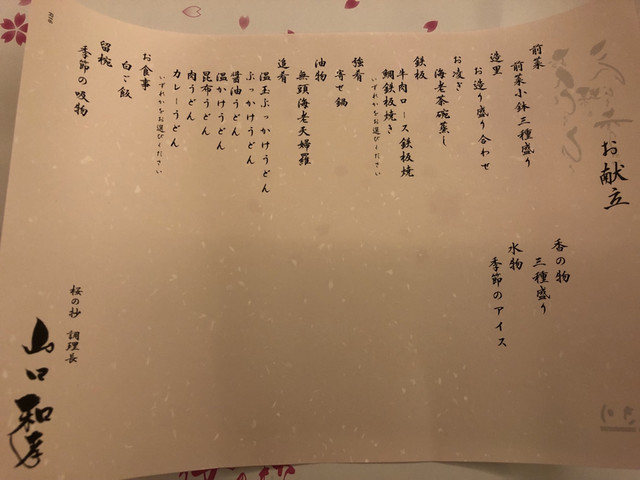 お献立
前菜
前菜小鉢三種盛り
造里
お造り盛り合わせ
お凌ぎ
海老茶碗蒸し
鉄板
牛肉ロース鉄板焼
鯛鉄板焼き
いずれかをお選びください
強肴
寄せ鍋
油物
無頭海老天婦羅
追肴
温玉ぶっかけうどん
ぶっかけうどん
醤油うどん
温かけうどん
昆布うどん
肉うどん
カレーうどん
いずれかをお選びください
お食事
白ご飯
留椀
季節の吸物
香の物
三種盛り
水物
季節のアイス
桜の抄 調理長
山口和孝